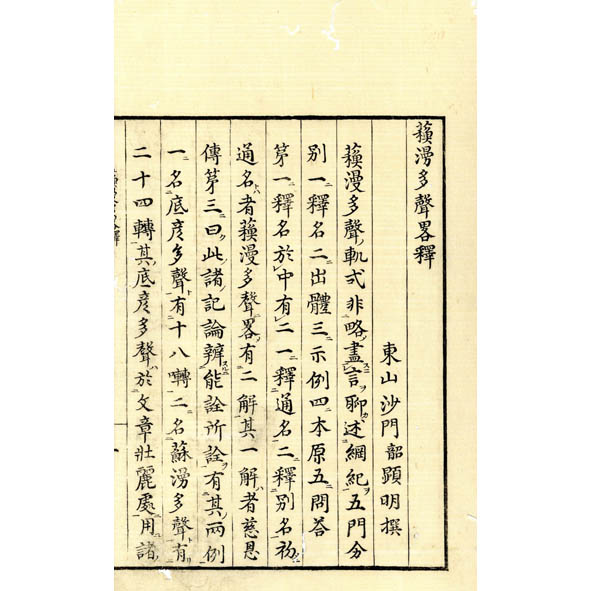 蘓漫多聲畧釋
東山沙門韶顕明撰
蘓漫多聲軌式非略盡言聊述網紀五門分
別一釋名二出體三示例四本原五問答
第一釋名於中有二一釋通名二釋別名初
通名者蘓漫多聲畧有二解其一解者慈恩
傳第三曰此諸記論辨能詮所詮有其兩例
一名底彦多聲有十八囀二名蘇漫多聲有
二十四轉其底彦多聲於文章壮麗處用諸